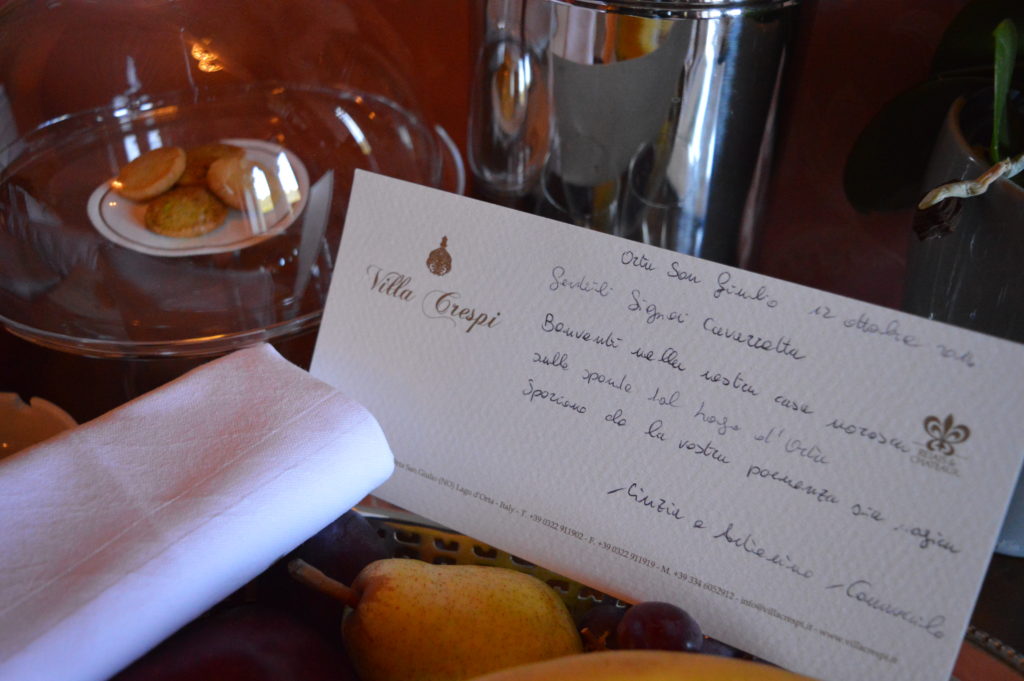 Villa Crespi
Orta San Giulio 12 ottobre
Gentili Signori Cavezzotta
Benvenuti nella nostra casa moresca
sulle sponde del Lago d'Orta
Speriamo che la vostra permanenza sia magica
Cinzia e Antonino Cannavacciuolo
RELAIS &
CHATEAUX
Orta San Giulio (NO) Lago d'Orta - Italy - T. +39 0322 911902 - F. +39 0322 911919 - M. +39 334 6052912 - info@villacrespi.it - www.villacrespi.it